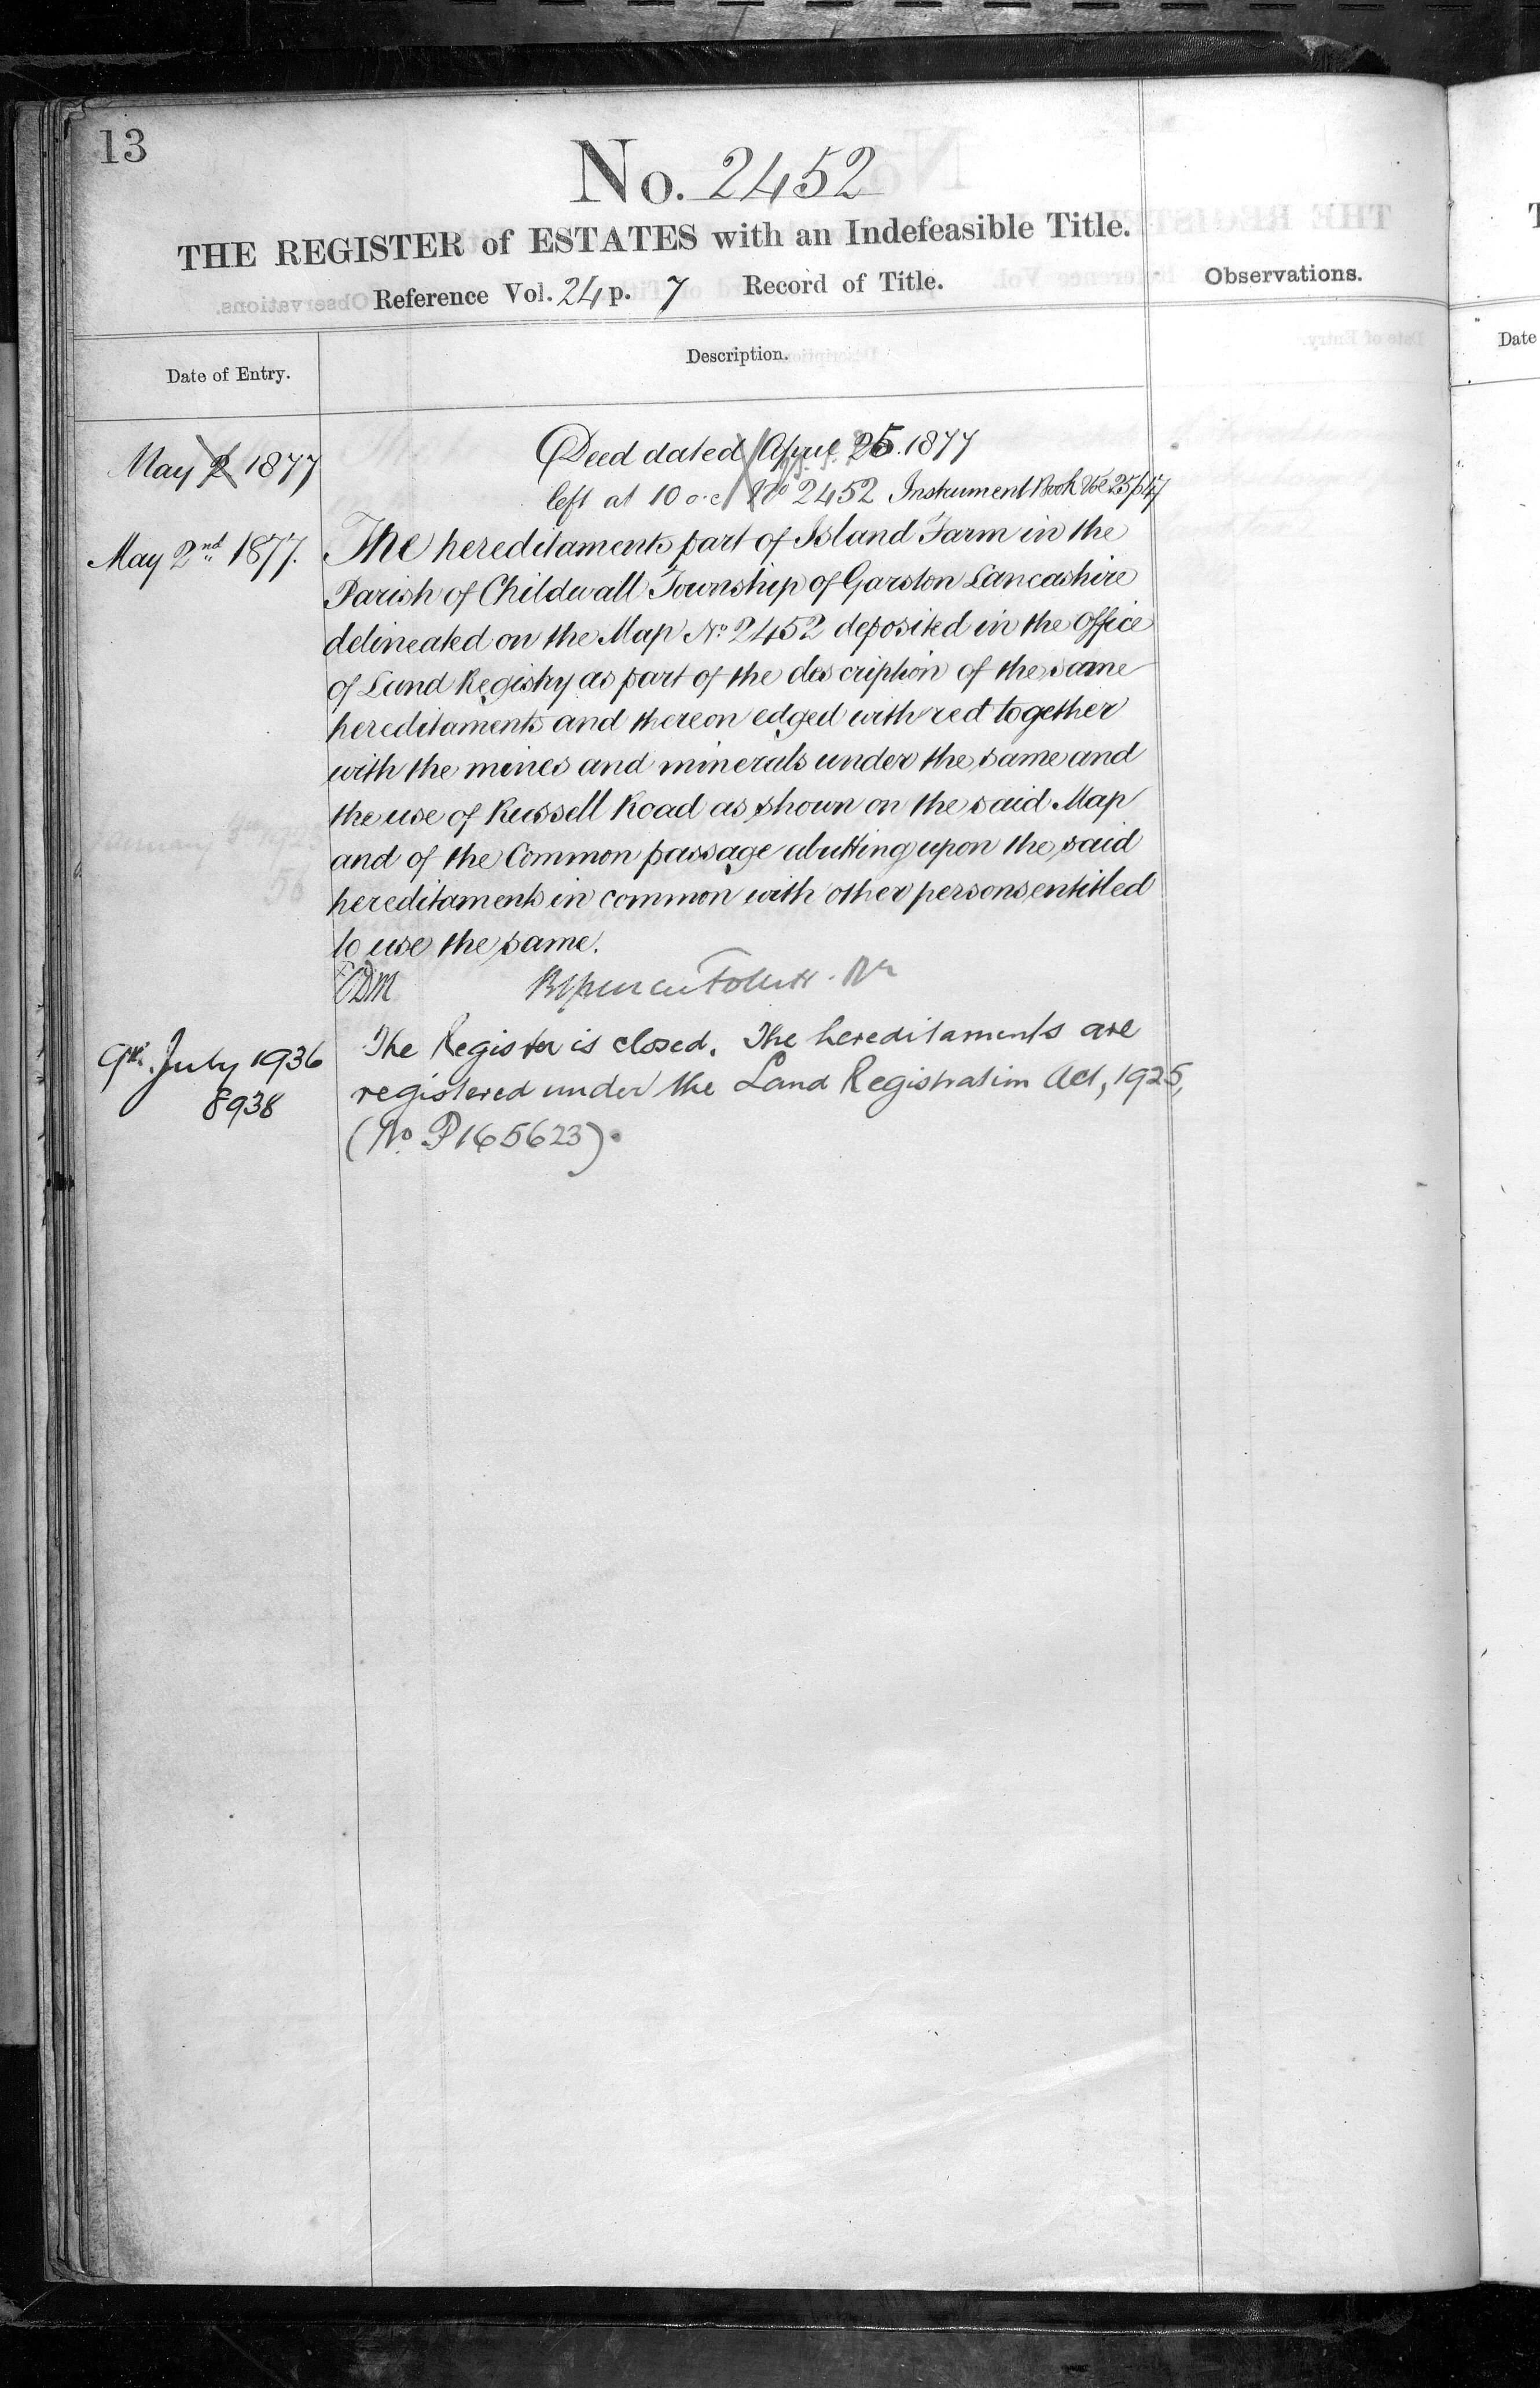 13
No. 2452
THE REGISTER of ESTATES with an Indefeasible Title.
Reference Vol. 24 p. 7 Record of Title.
Observations.
Date of Entry.
Description.
Date
May 2 1877
Deed dated April 25. 1877
left at 10 o.c. No 2452 Instrument Book Vol 25 p 47
May 2nd 1877.
The hereditaments part of Island Farm in the
Parish of Childwall Township of Garston Lancashire
delineated on the Map No 2452 deposited in the Office
of Land Registry as part of the description of the same
hereditaments and thereon edged with red together
with the mines and minerals under the same and
the use of Russell Road as shown on the said Map
and of the Common passage abutting upon the said
hereditaments in common with other persons entitled
to use the same.
9th July 1936
The Register is closed. The hereditaments are
8938
registered under the Land Registration Act, 1925,
(No. P165623).